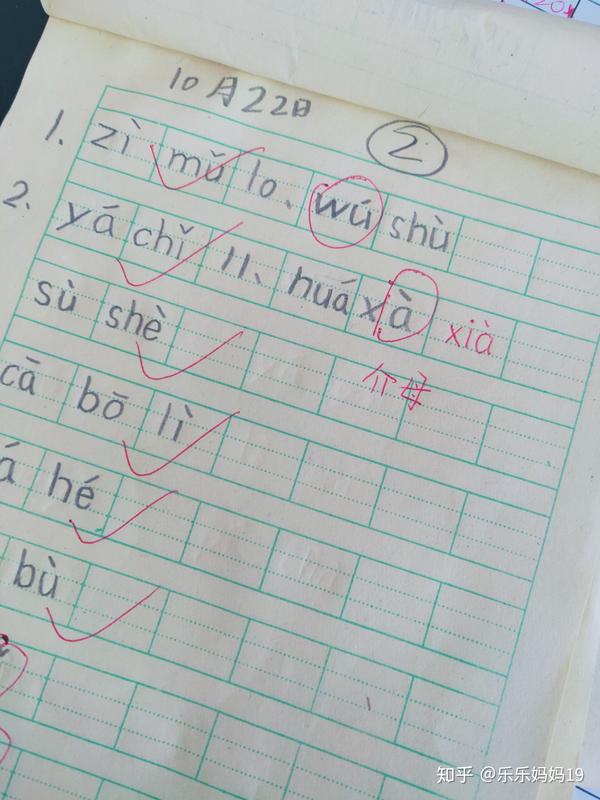 10月22日
②
1. zì mǔ 10、wú shù
2. yá chǐ 11、huá xà xià
sù shè
介母
cā bō lì
á hé
bù
知乎 @乐乐妈妈19